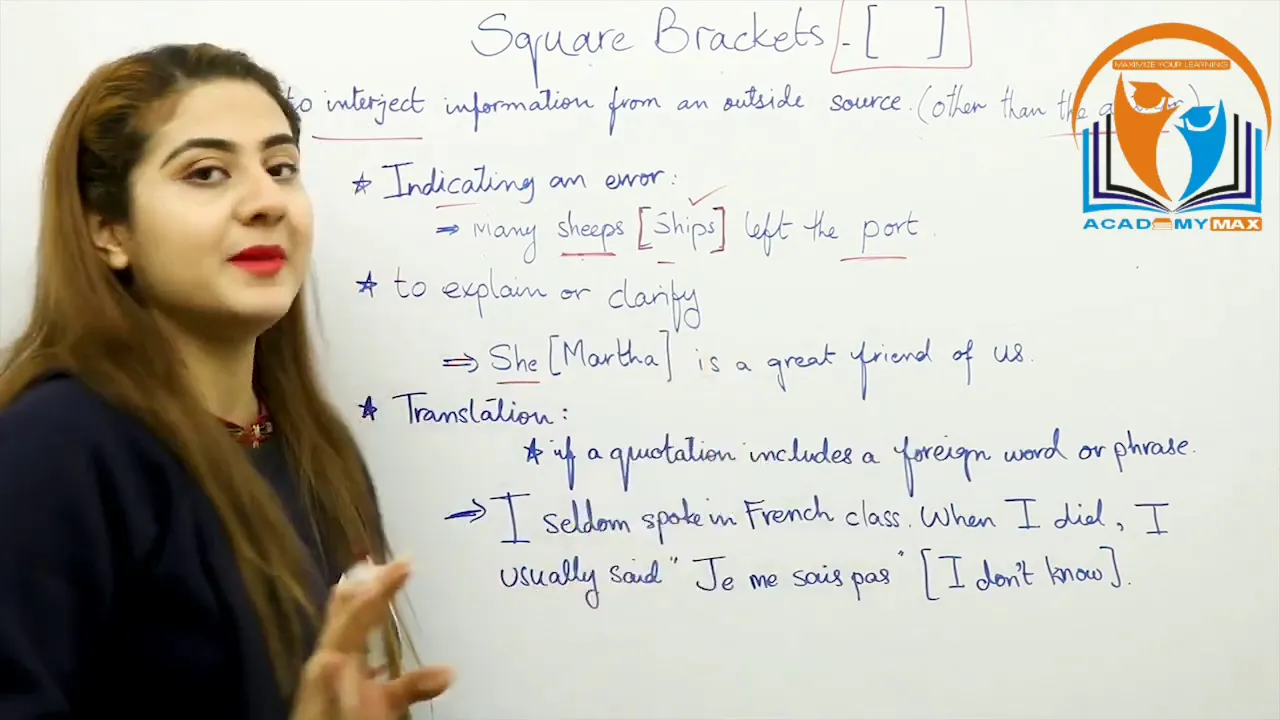 Square Brackets - [ ]
to interject information from an outside source. (other than the
MAXIMIZE YOUR LEARNING
ACADEMYMAX
★ Indicating an error:
⇒ Many sheeps [Ships] left the port.
★ to explain or clarify
⇒ She [Martha] is a great friend of us.
★ Translation:
★ if a quotation includes a foreign word or phrase.
→ I seldom spoke in French class. When I did, I
usually said "Je me sais pas" [I don't know].